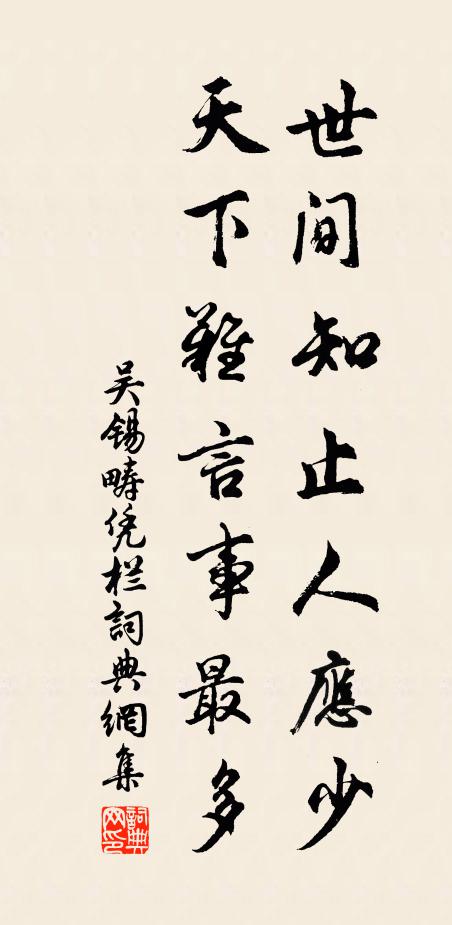 世間知止人應少
天下難言事最多
吴锡畴凭栏詞典網集
詞典网印